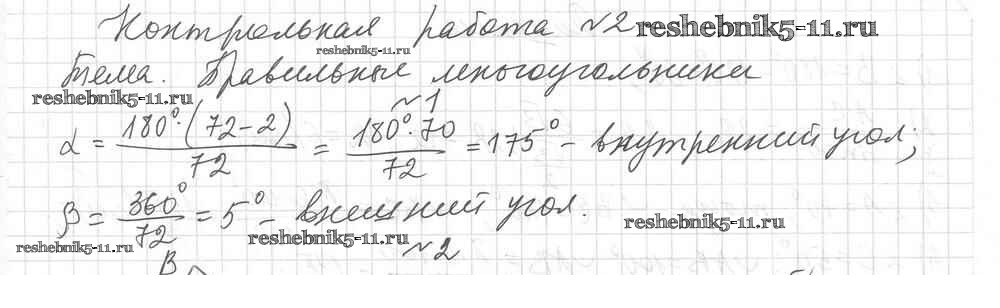 Контрольная работа №2 reshebnik5-11.ru
reshebnik5-11.ru
Тема. Правильные многоугольники
reshebnik5-11.ru
№1
α = 180°·(72-2)/72 = 180°·70/72 = 175° - внутренний угол;
β = 360°/72 = 5° - внешний угол.
reshebnik5-11.ru
reshebnik5-11.ru
reshebnik5-11.ru
№2
B